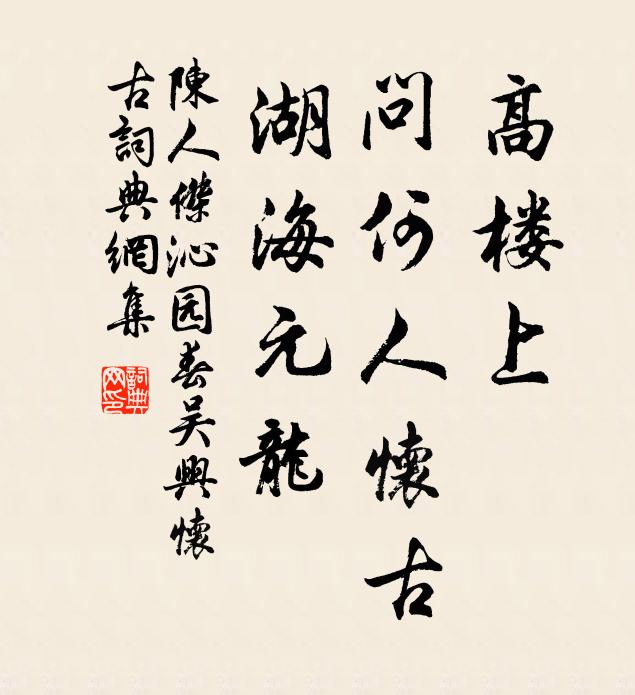 高楼上
问何人懷古
湖海元龍
陳人傑沁园春吴興懷
古詞典網集
詞典
网印